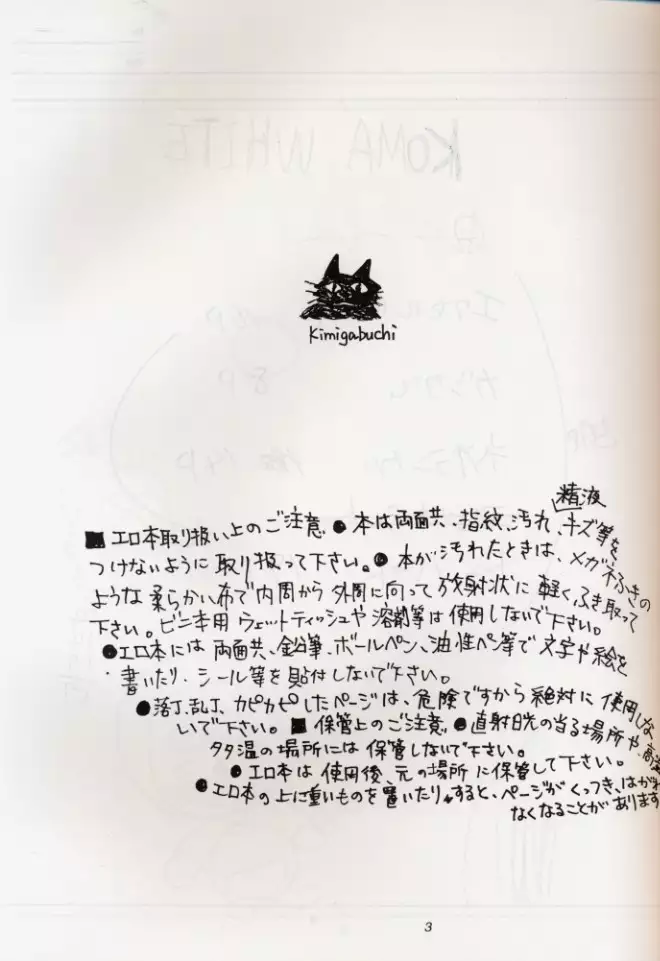 KOMA WHITE
Kimigabuchi
精液
■エロ本取り扱い上のご注意●本は両面共、指紋、汚れ、キズ等を
つけないように取り扱って下さい。●本が汚れたときは、メガネふきの
ような柔らかい布で内周から外周に向って放射状に軽くふき取って
下さい。ビニ本用ウェットティッシュや溶剤等は使用しないで下さい。
●エロ本には両面共、鉛筆、ボールペン、油性ペン等で文字や絵を
書いたり・シール等を貼付しないで下さい。
●落丁、乱丁、カピカピしたページは、危険ですから絶対に使用しな
いで下さい。■保管上のご注意●直射日光の当る場所や、高温
多湿の場所には保管しないで下さい。
●エロ本は使用後、元の場所に保管して下さい。
●エロ本の上に重いものを置いたりすると、ページがくっつき、はがれ
なくなることがあります
3